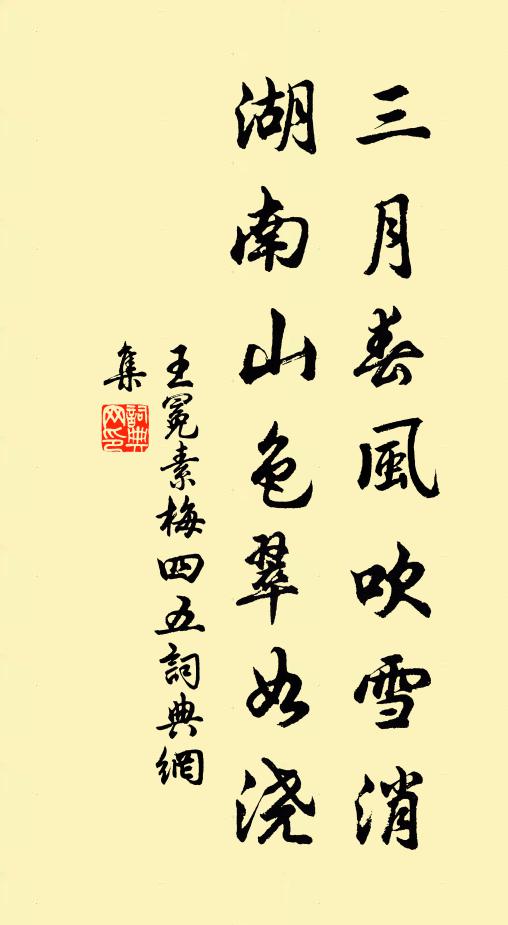 三月春風吹雪消
湖南山色翠如浇
王冕素梅四五詞典網
集
詞典網印